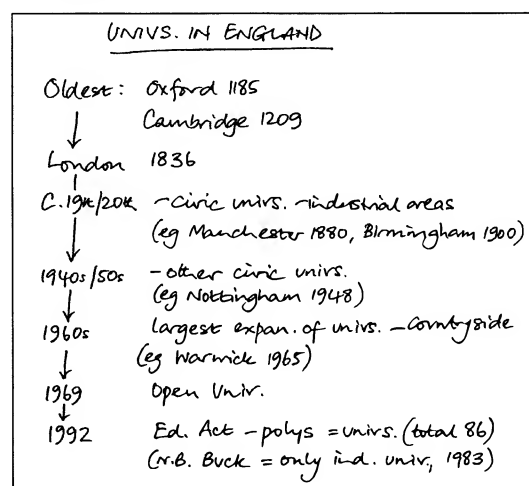 UNIVS. IN ENGLAND
Oldest: Oxford 1185
Cambridge 1209
London 1836
C.19th/20th -civic univs. -industrial areas
(eg Manchester 1880, Birmingham 1900)
1940s/50s -other civic univs.
(eg Nottingham 1948)
1960s largest expan. of univs. -Countryside
(eg Warwick 1965)
1969 Open Univ.
1992 Ed. Act - polys = univs. (total 86)
(N.B. Buck = only ind. univ, 1983)